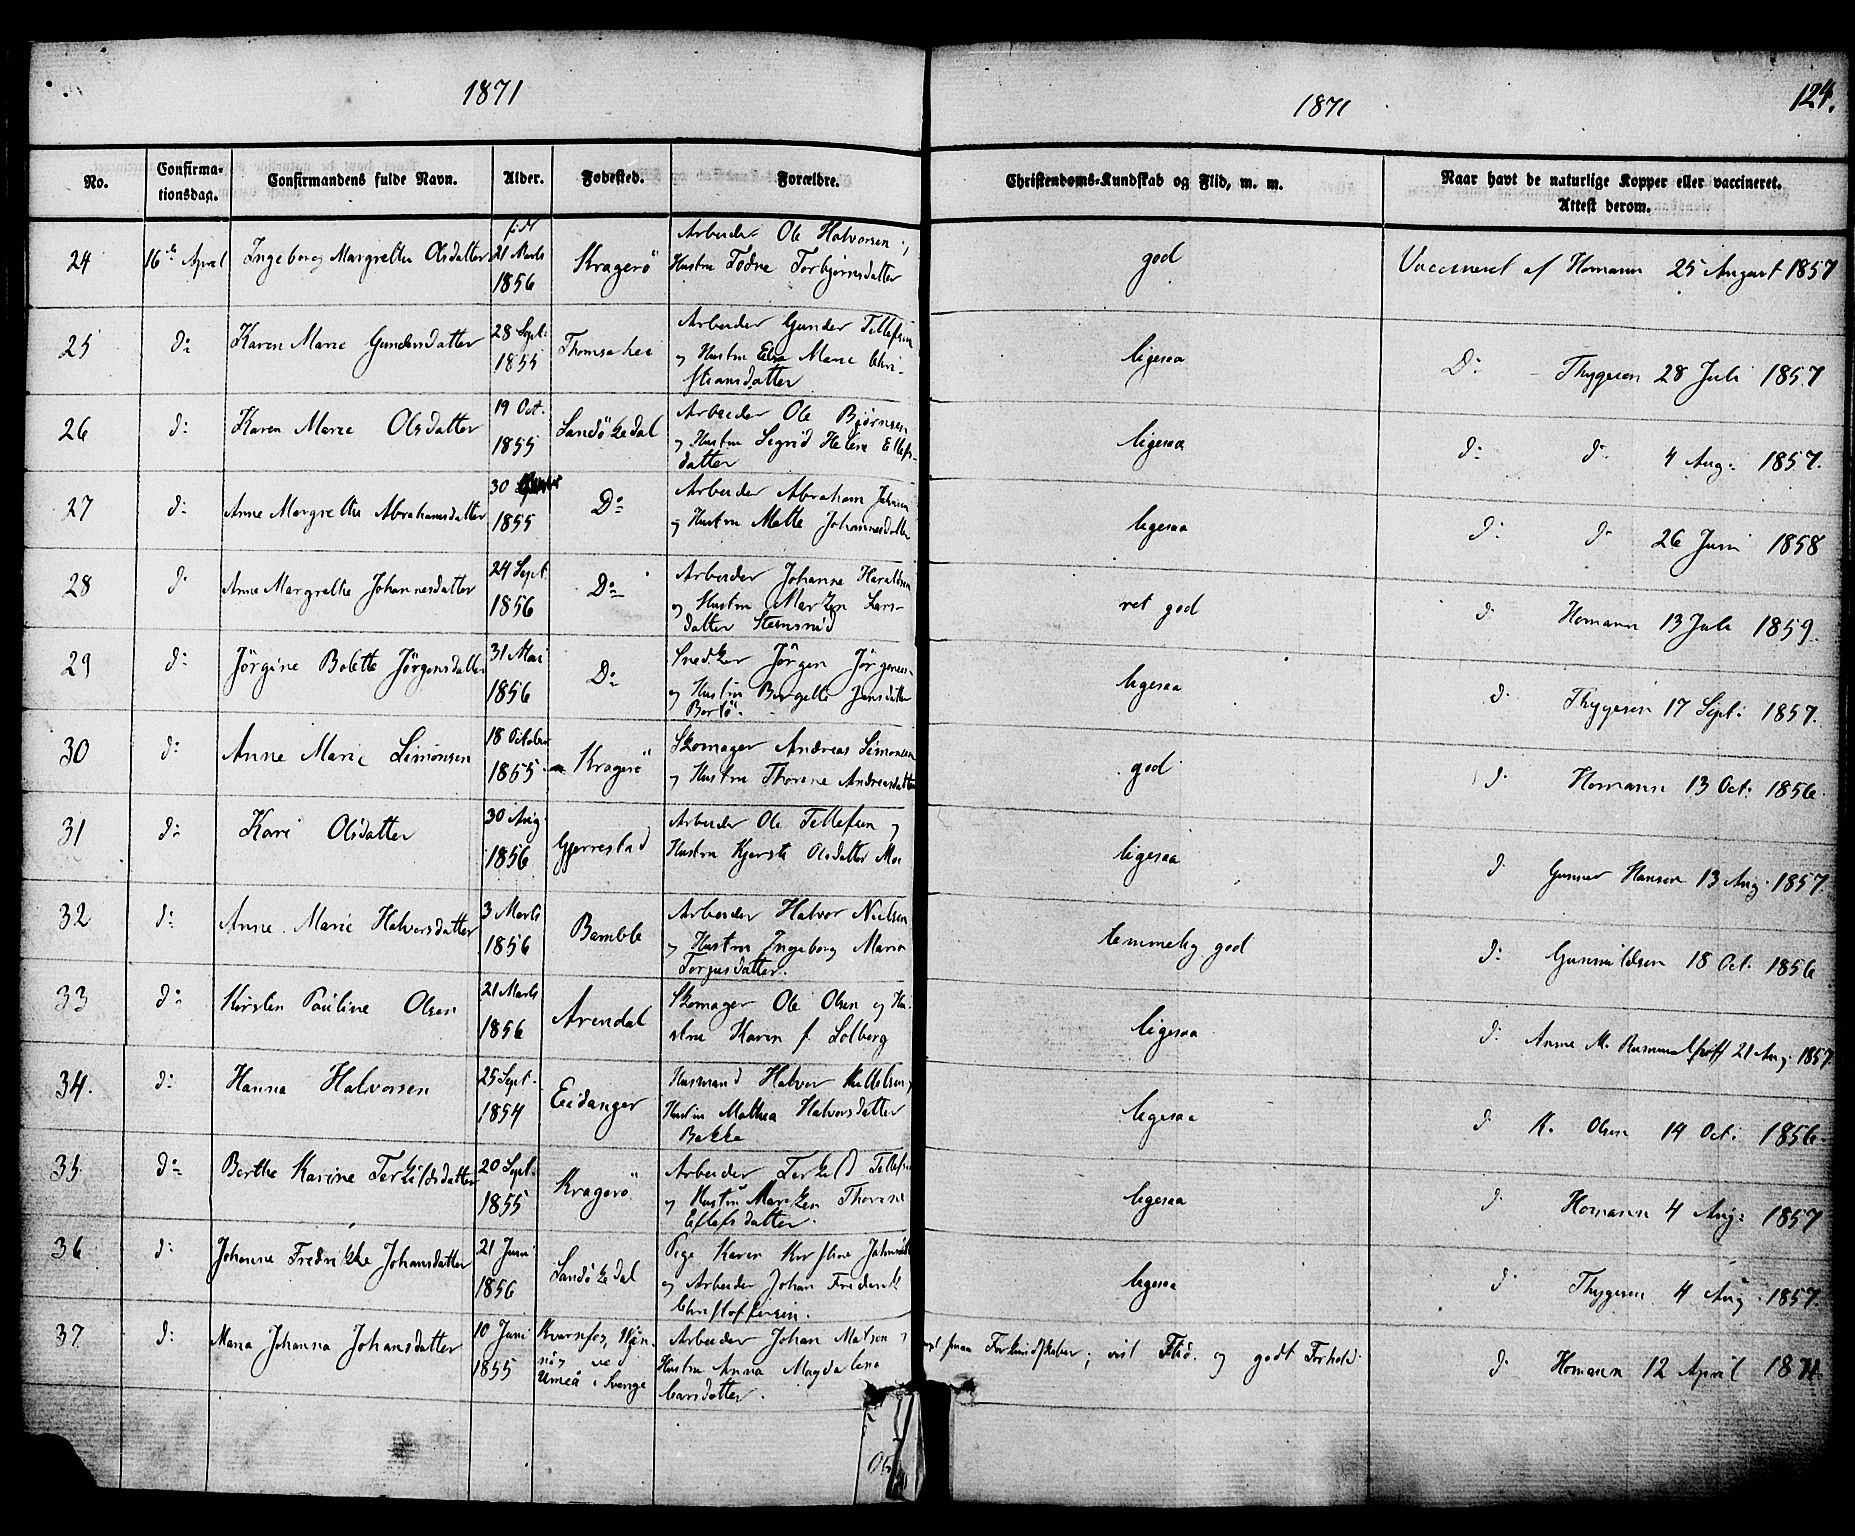 1871
1871
124.
No.
Confirma-
tionsdag.
Confirmandens fulde Navn.
Alder.
Fødested.
Forældre.
Christendoms-Kundskab og Flid, m. m.
Naar havt de naturlige Kopper eller vaccineret.
Attest derom.
24 16de April Ingeborg Margrethe Olsdatter
født
21 Marts
1856
Kragerö
Arbeider Ole Halvorsen,
Hustru Torbjørnsdatter
god
Vaccineret af Homann 25 August 1857
25 do Karen Marie Gundersdatter
28 Sept:
1855
Arbeider Gunder Tellefsen
og Hustru Marie Chri-
stiansdatter
ligesaa
Do Thygesen 28 Juli 1857
26 do Karen Marie Olsdatter
19 Oct.
1855
Sandökedal
Arbeider Ole Bjørnsen
og Hustru Sigrid Helene Ellefs-
datter
ligesaa
do do 4 Aug: 1857.
27 do Anne Margrethe Abrahamsdatter
30
1855
Do
Arbeider Abraham
og Hustru Mathe Johannesdatter
ligesaa
do do 26 Juni 1858
28 do Anne Margrethe Johannesdatter
24 Sept.
1856
Do
Arbeider Johannes Haraldsen
og Hustru Marken Lars-
datter
ret god
do Homann 13 Juli 1859.
29 do Jörgine Bolette Jörgensdatter
31 Mai
1856
Do
Snedker Jörgen Jörgensen
og Hustru Jensdatter
ligesaa
do Thygesen 17 Sept: 1857.
30 do Anne Marie Simonsen
18 October
1855
Kragerö
Skomager Andreas Simonsen
og Hustru Thorine Andreasdatter
god
do Homann 13 Oct: 1856.
31 do Kari Olsdatter
30 Aug
1856
Gjerrestad
Arbeider Ole Tellefsen og
Hustru Kjersti Olsdatter
ligesaa
do Gunner Hansen 13 Aug. 1857.
32 do Anne Marie Halvorsdatter
3 Marts
1856
Bamble
Arbeider Halvor Nielsen
og Hustru Ingeborg Maria
Torjusdatter.
temmelig god
do Gunnuldsen 18 Oct. 1856
33 do Kirsten Pauline Olsen
21 Marts
1856
Arendal
Skomager Ole Olsen og Hu-
stru Karen f. Solberg
ligesaa
do Anne M. 21 Aug. 1857
34. do Hanna Halvorsen
25 Sept.
1854
Eidanger
Husmand Halvor Kittelsen,
Hustru Mathea Halvorsdatter
Bakke
ligesaa
do K. Olsen 14 Oct. 1856.
35 do Berthe Karine Terkildsdatter
20 Sept.
1855
Kragerö
Arbeider Terkild Tellefsen
og Hustru Marken Thorine
Ellefsdatter.
ligesaa
do Homann 4 Aug: 1857
36 do Johanne Fredrikke Johansdatter
21 Juni
1856
Sandökedal
Pige Karen Kirstine
og Arbeider Johan Frederik
Christoffersen.
ligesaa
do Thygesen 4 Aug. 1857.
37 do Maria Johanna Johansdatter
10 Juni
1855
ved
Umeå i Sverige
Arbeider Johan Matson
Hustru Anna Magdalena
Larsdatter.
smaa Forkundskaber; vist Flid og godt Forhold.
do Homann 12 April 1871.